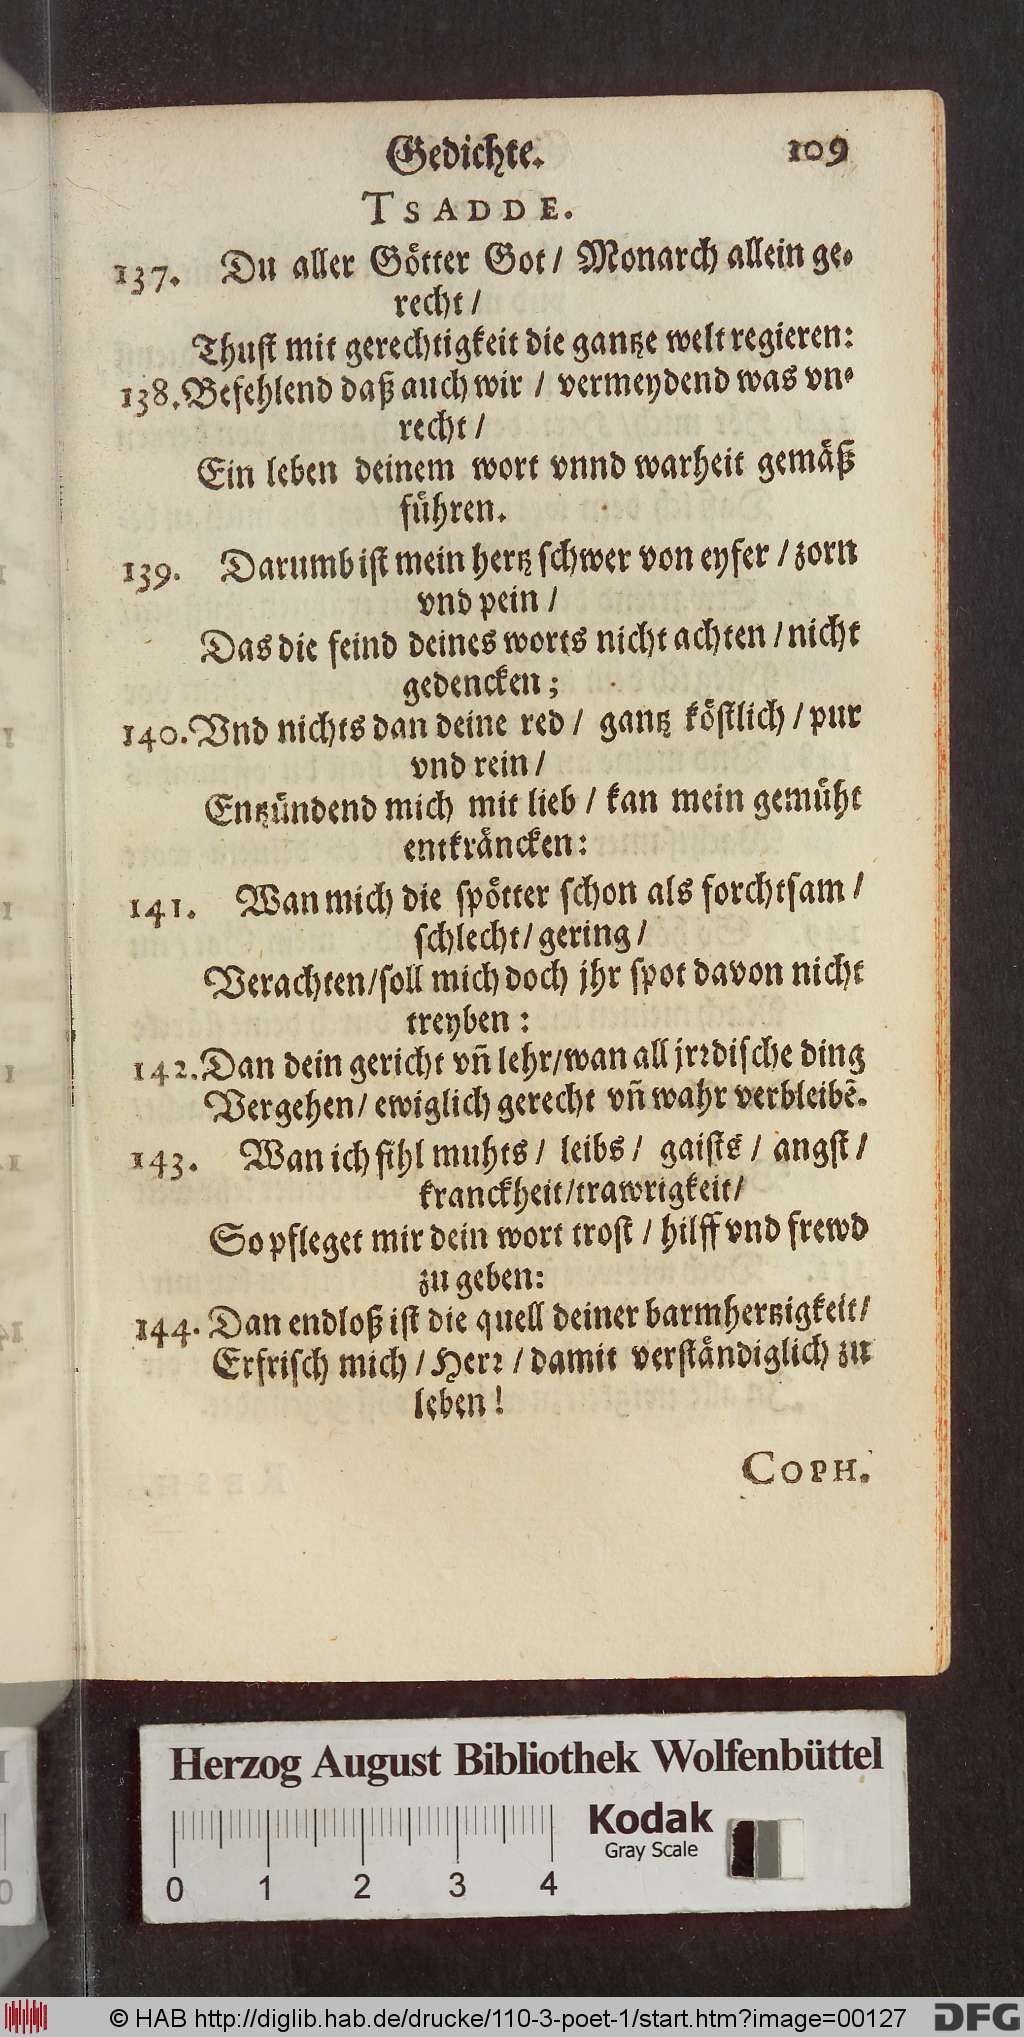 Gedichte. 109
TSADDE.
137. Du aller Götter Got / Monarch allein ge-
recht /
Thust mit gerechtigkeit die gantze welt regieren:
138. Befehlend daß auch wir / vermeydend was vn-
recht /
Ein leben deinem wort vnnd warheit gemäß
führen.
139. Darumb ist mein hertz schwer von eyfer / zorn
vnd pein /
Das die feind deines worts nicht achten / nicht
gedencken ;
140. Vnd nichts dan deine red / gantz köstlich / pur
vnd rein /
Entzündend mich mit lieb / kan mein gemüht
entkräncken :
141. Wan mich die spötter schon als forchtsam /
schlecht / gering /
Verachten / soll mich doch jhr spot davon nicht
treyben :
142. Dan dein gericht vn̄ lehr / wan all jrrdische ding
Vergehen / ewiglich gerecht vn̄ wahr verbleibē.
143. Wan ich fihl muhts / leibs / gaists / angst /
kranckheit / trawrigkeit /
So pfleget mir dein wort trost / hilff vnd frewd
zu geben:
144. Dan endloß ist die quell deiner barmhertzigkeit /
Erfrisch mich / Herr / damit verständiglich zu
leben !
COPH.
Herzog August Bibliothek Wolfenbüttel
Kodak
Gray Scale
0 1 2 3 4
© HAB http://diglib.hab.de/drucke/110-3-poet-1/start.htm?image=00127 DFG